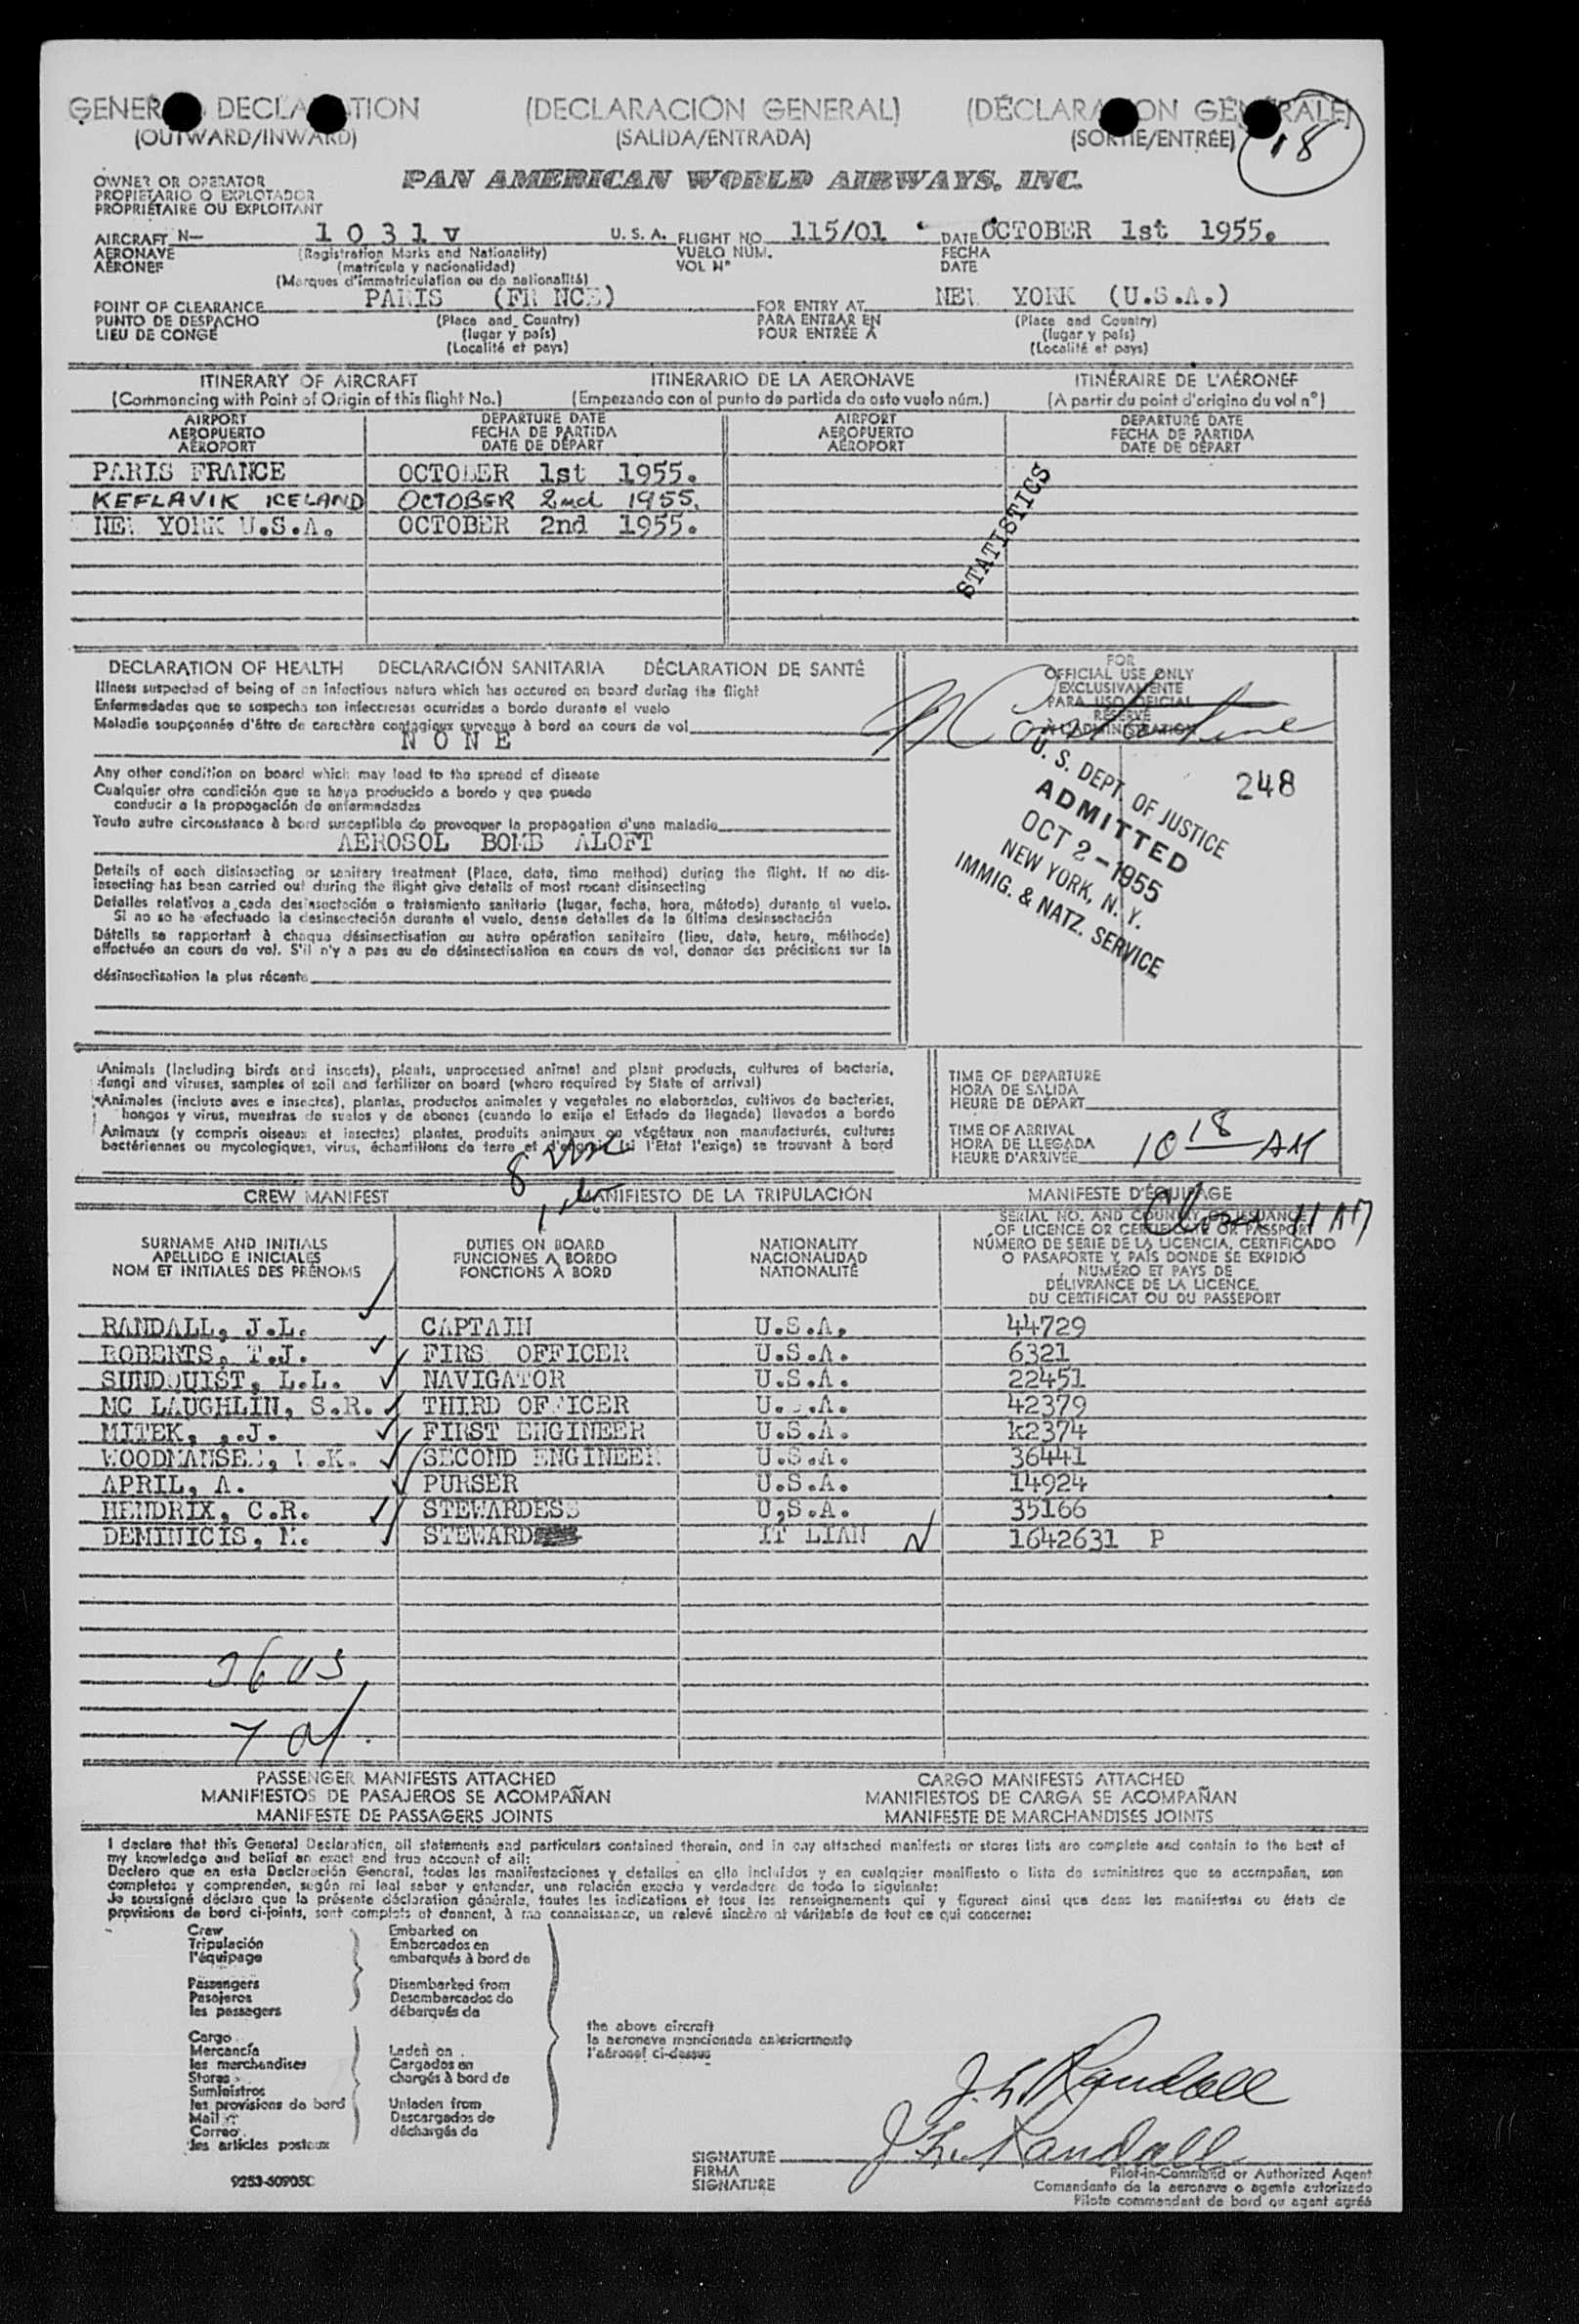 GENERAL DECLARATION (DECLARACIÓN GENERAL) (DÉCLARATION GÉNÉRALE)
(OUTWARD/INWARD) (SALIDA/ENTRADA) (SORTIE/ENTRÉE) 18
OWNER OR OPERATOR PAN AMERICAN WORLD AIRWAYS, INC.
PROPIETARIO O EXPLOTADOR
PROPRIÉTAIRE OU EXPLOITANT
AIRCRAFT N— 1 0 3 1 v U. S. A. FLIGHT NO. 115/01 DATE OCTOBER 1st 1955.
AERONAVE (Registration Marks and Nationality) VUELO NÚM. FECHA
AÉRONEF (matrícula y nacionalidad) VOL Nº DATE
(Marques d'immatriculation ou de nationalité)
POINT OF CLEARANCE PARIS (FR NCE) FOR ENTRY AT NEW YORK (U.S.A.)
PUNTO DE DESPACHO (Place and Country) PARA ENTRAR EN (Place and Country)
LIEU DE CONGÉ (lugar y país) POUR ENTRÉE A (lugar y país)
(Localité et pays) (Localité et pays)
ITINERARY OF AIRCRAFT ITINERARIO DE LA AERONAVE ITINÉRAIRE DE L'AÉRONEF
(Commencing with Point of Origin of this flight No.) (Empezando con el punto de partida de este vuelo núm.) (A partir du point d'origine du vol nº)
AIRPORT DEPARTURE DATE AIRPORT DEPARTURE DATE
AEROPUERTO FECHA DE PARTIDA AEROPUERTO FECHA DE PARTIDA
AÉROPORT DATE DE DÉPART AÉROPORT DATE DE DÉPART
PARIS FRANCE OCTOBER 1st 1955.
KEFLAVIK ICELAND OCTOBER 2nd 1955.
NEW YORK U.S.A. OCTOBER 2nd 1955.
STATISTICS
DECLARATION OF HEALTH DECLARACIÓN SANITARIA DÉCLARATION DE SANTÉ
Illness suspected of being of an infectious nature which has occured on board during the flight
Enfermedades que se sospecha son infecciosas ocurridas a bordo durante el vuelo
Maladie soupçonnée d'être de caractère contagieux survenue à bord en cours de vol
N O N E
Any other condition on board which may lead to the spread of disease
Cualquier otra condición que se haya producido a bordo y que puede
conducir a la propagación de enfermedades
Toute autre circonstance à bord susceptible de provoquer la propagation d'une maladie
AEROSOL BOMB ALOFT
Details of each disinsecting or sanitary treatment (Place, date, time method) during the flight. If no dis-
insecting has been carried out during the flight give details of most recent disinsecting
Detalles relativos a cada desinsectación o tratamiento sanitario (lugar, fecha, hora, método) durante el vuelo.
Si no se ha efectuado la desinsectación durante el vuelo, dense detalles de la última desinsectación
Détails se rapportant à chaque désinsectisation ou autre opération sanitaire (lieu, date, heure, méthode)
effectuée en cours de vol. S'il n'y a pas eu de désinsectisation en cours de vol, donner des précisions sur la
désinsectisation la plus récente
FOR
OFFICIAL USE ONLY
EXCLUSIVAMENTE
PARA USO OFICIAL
RÉSERVÉ
À L'ADMINISTRATION
248
U. S. DEPT. OF JUSTICE
ADMITTED
OCT 2 - 1955
NEW YORK, N. Y.
IMMIG. & NATZ. SERVICE
Animals (Including birds and insects), plants, unprocessed animal and plant products, cultures of bacteria,
fungi and viruses, samples of soil and fertilizer on board (where required by State of arrival)
Animales (incluso aves e insectos), plantas, productos animales y vegetales no elaborados, cultivos de bacterias,
hongos y virus, muestras de suelos y de abonos (cuando lo exija el Estado de llegada) llevados a bordo
Animaux (y compris oiseaux et insectes) plantes, produits animaux ou végétaux non manufacturés, cultures
bactériennes ou mycologiques, virus, échantillons de terre et d'engrais (si l'Etat l'exige) se trouvant à bord
TIME OF DEPARTURE
HORA DE SALIDA
HEURE DE DÉPART
TIME OF ARRIVAL
HORA DE LLEGADA
HEURE D'ARRIVÉE 10 18 AM
CREW MANIFEST MANIFIESTO DE LA TRIPULACIÓN MANIFESTE D'ÉQUIPAGE
11 AM
SURNAME AND INITIALS DUTIES ON BOARD NATIONALITY SERIAL NO. AND COUNTRY OF ISSUANCE
APELLIDO E INICIALES FUNCIONES A BORDO NACIONALIDAD OF LICENCE OR CERTIFICATE OR PASSPORT
NOM ET INITIALES DES PRÉNOMS FONCTIONS À BORD NATIONALITÉ NÚMERO DE SERIE DE LA LICENCIA, CERTIFICADO
O PASAPORTE Y PAÍS DONDE SE EXPIDIÓ
NUMÉRO ET PAYS DE
DÉLIVRANCE DE LA LICENCE,
DU CERTIFICAT OU DU PASSEPORT
RANDALL, J.L. CAPTAIN U.S.A. 44729
ROBERTS, T.J. FIRS OFFICER U.S.A. 6321
SUNDQUIST, L.L. NAVIGATOR U.S.A. 22451
MC LAUGHLIN, S.R. THIRD OFFICER U.S.A. 42379
MITEK, .J. FIRST ENGINEER U.S.A. k2374
WOODMANSEE, W.K. SECOND ENGINEER U.S.A. 36441
APRIL, A. PURSER U.S.A. 14924
HENDRIX, C.R. STEWARDESS U,S.A. 35166
DEMINICIS, M. STEWARD IT LIAN 1642631 P
PASSENGER MANIFESTS ATTACHED CARGO MANIFESTS ATTACHED
MANIFIESTOS DE PASAJEROS SE ACOMPAÑAN MANIFIESTOS DE CARGA SE ACOMPAÑAN
MANIFESTE DE PASSAGERS JOINTS MANIFESTE DE MARCHANDISES JOINTS
I declare that this General Declaration, all statements and particulars contained therein, and in any attached manifests or stores lists are complete and contain to the best of
my knowledge and belief an exact and true account of all:
Declaro que en esta Declaración General, todas las manifestaciones y detalles en ella incluidos y en cualquier manifiesto o lista de suministros que se acompañan, son
completos y comprenden, según mi leal saber y entender, una relación exacta y verdadera de todo lo siguiente:
Je soussigné déclare que la présente déclaration générale, toutes les indications et tous les renseignements qui y figurent ainsi que dans les manifestes ou états de
provisions de bord ci-joints, sont complets et donnent, à ma connaissance, un relevé sincère et véritable de tout ce qui concerne:
Crew Embarked on
Tripulación Embarcados en
l'équipage embarqués à bord de
Passengers Disembarked from
Pasajeros Desembarcados de
les passagers débarqués de
the above aircraft
la aeronave mencionada anteriormente
l'aéronef ci-dessus
Cargo
Mercancía Laden on
les marchandises Cargados en
Stores chargés à bord de
Suministros
les provisions de bord Unladen from
Mail Descargados de
Correo déchargés de
les articles postaux
J. L. Randall
SIGNATURE J. L. Randall
FIRMA Pilot-in-Command or Authorized Agent
SIGNATURE Comandante de la aeronave o agente autorizado
Pilote commandant de bord ou agent agréé
9253-60905C